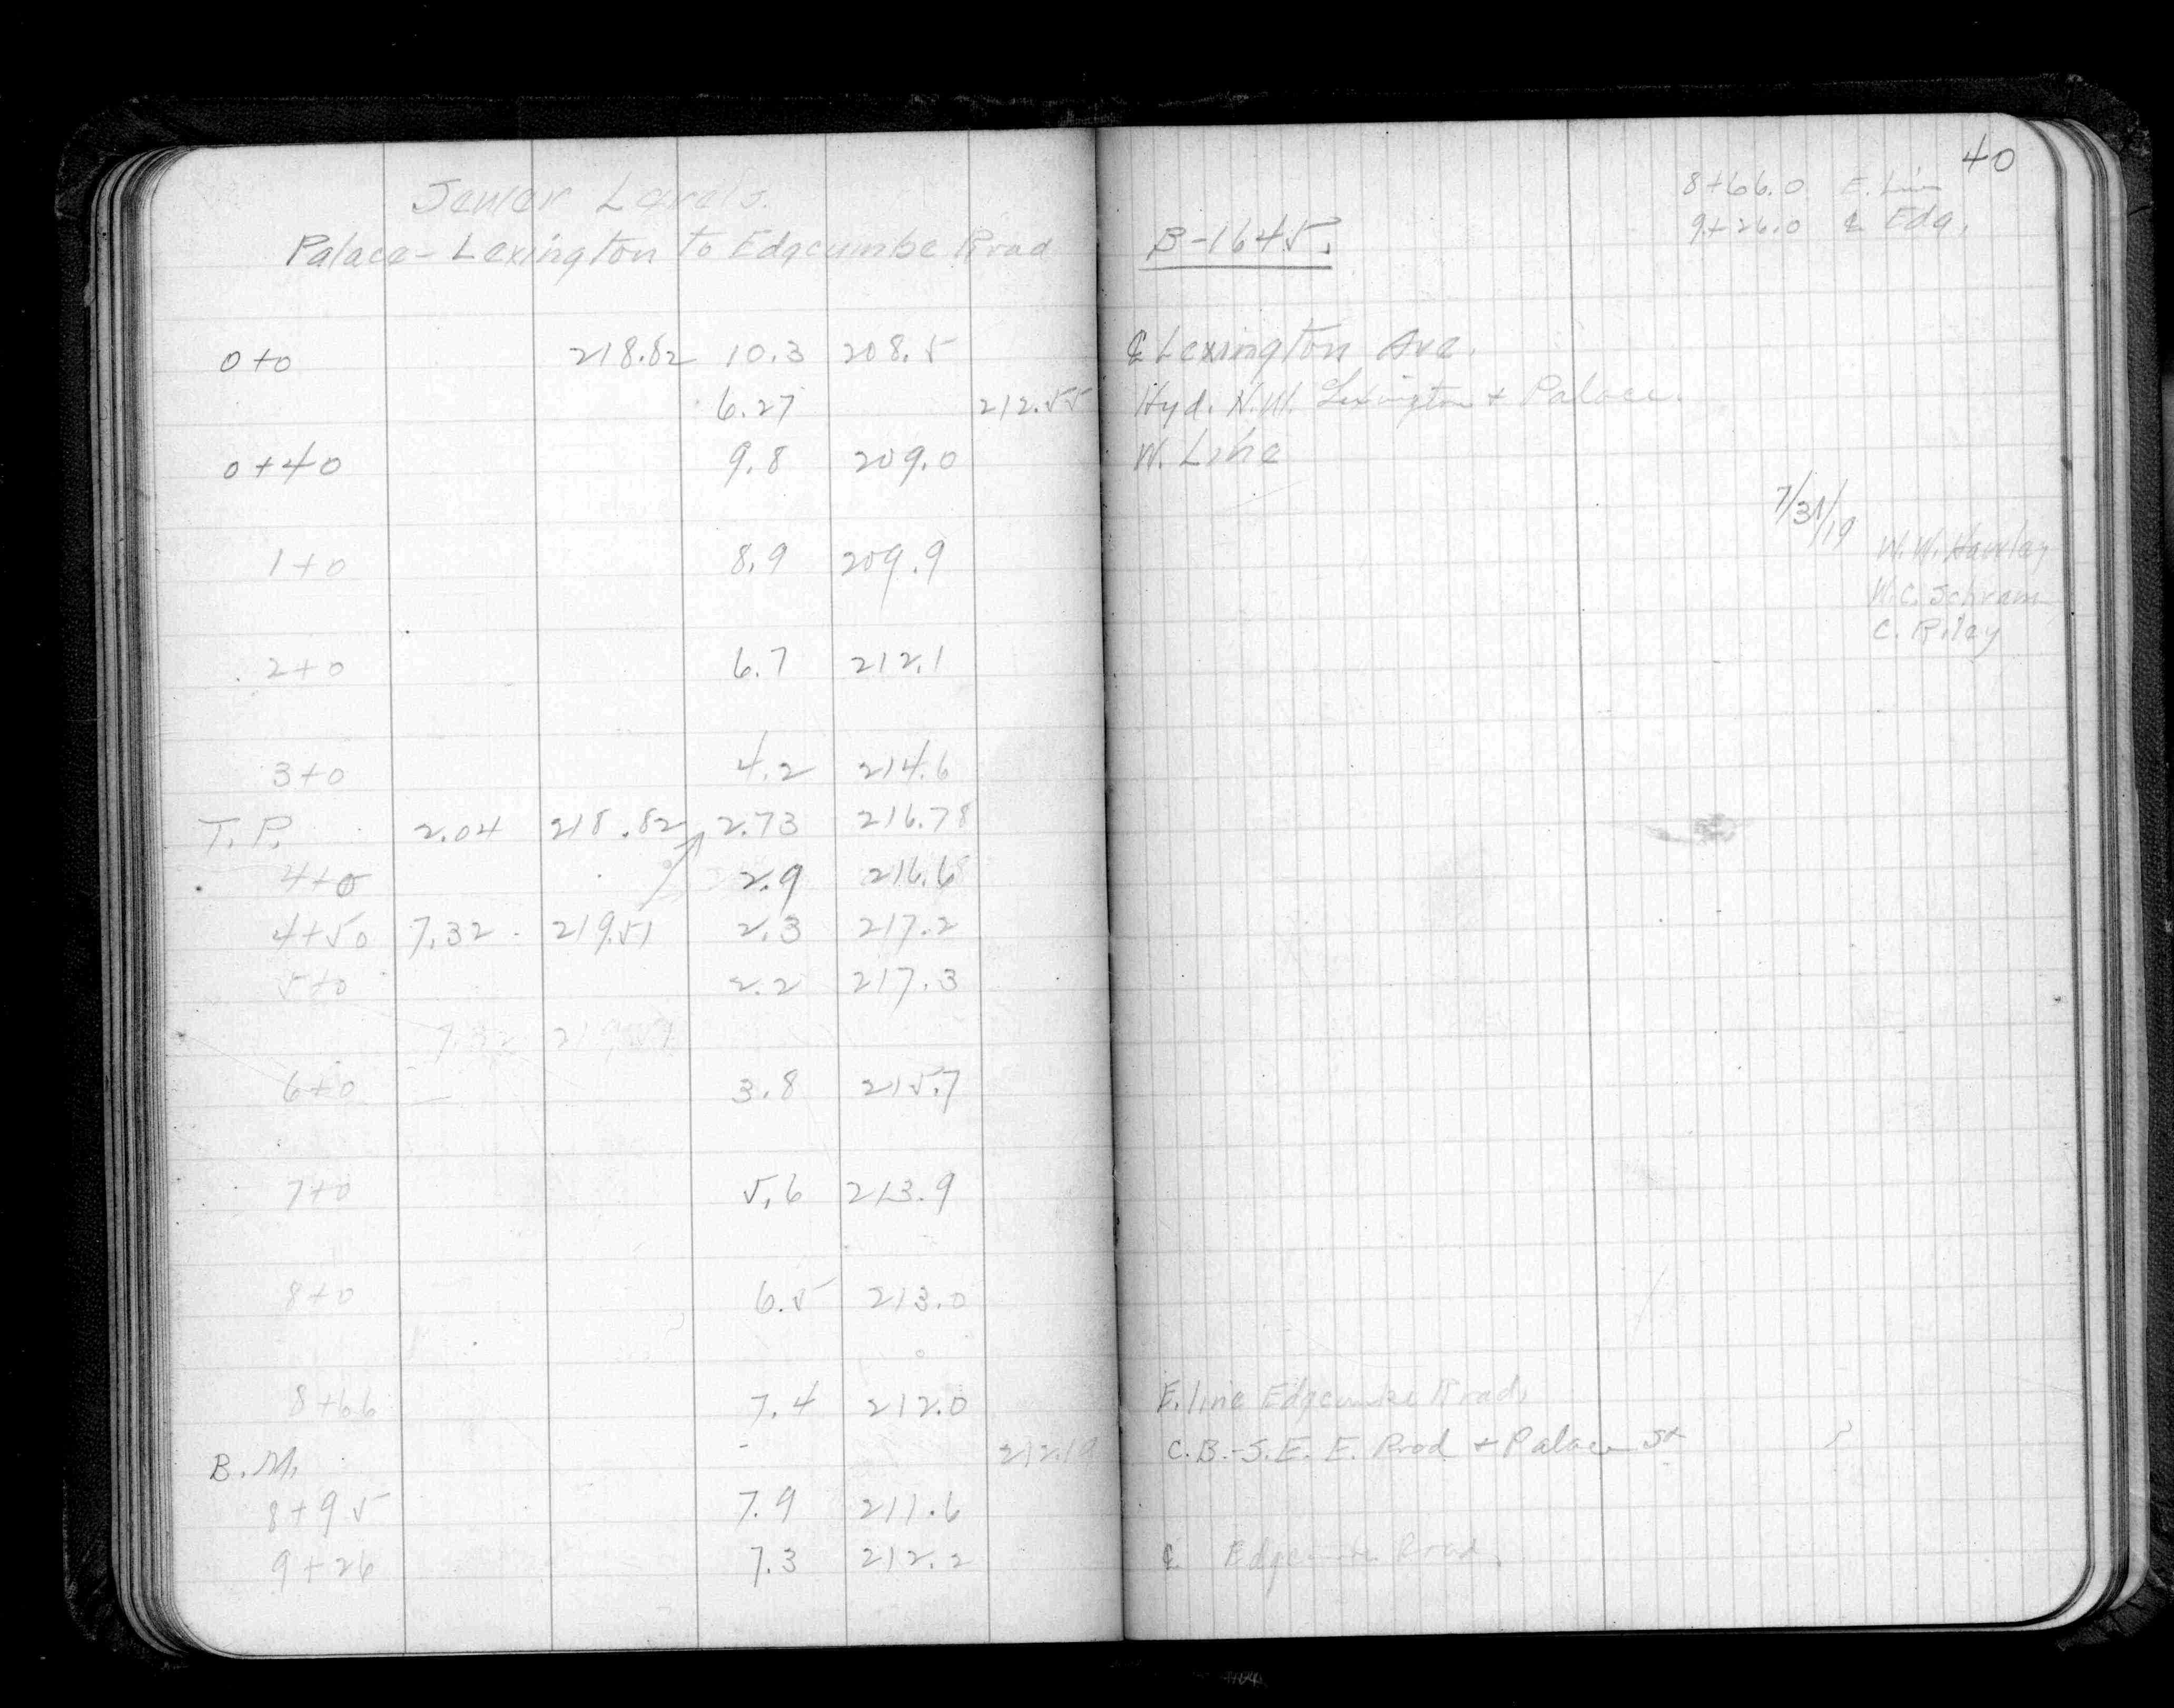 Sewer Levels.
Palace - Lexington to Edgcumbe Road
0+0 218.82 10.3 208.5
6.27 212.55
0+40 9.8 209.0
1+0 8.9 209.9
2+0 6.7 212.1
3+0 4.2 214.6
T.P. 2.04 218.82 2.73 216.78
4+0 2.9 216.6
4+50 7.32 219.51 2.3 217.2
5+0 2.2 217.3
7.32 219.51
6+0 3.8 215.7
7+0 5.6 213.9
8+0 6.5 213.0
8+66 7.4 212.0
B.M. - 212.19
8+95 7.9 211.6
9+26 7.3 212.2
40
8+66.0 E. Line
9+26.0 ℄ Edg.
B-1645.
℄ Lexington Ave.
Hyd. N.W. Lexington + Palace.
W. Line
7/31/19
W.W. Hawley
W.C. Schram
C. Riley
E. line Edgcumbe Road.
C.B.-S.E. E. Rood + Palace St
℄ Edgcumbe Road.